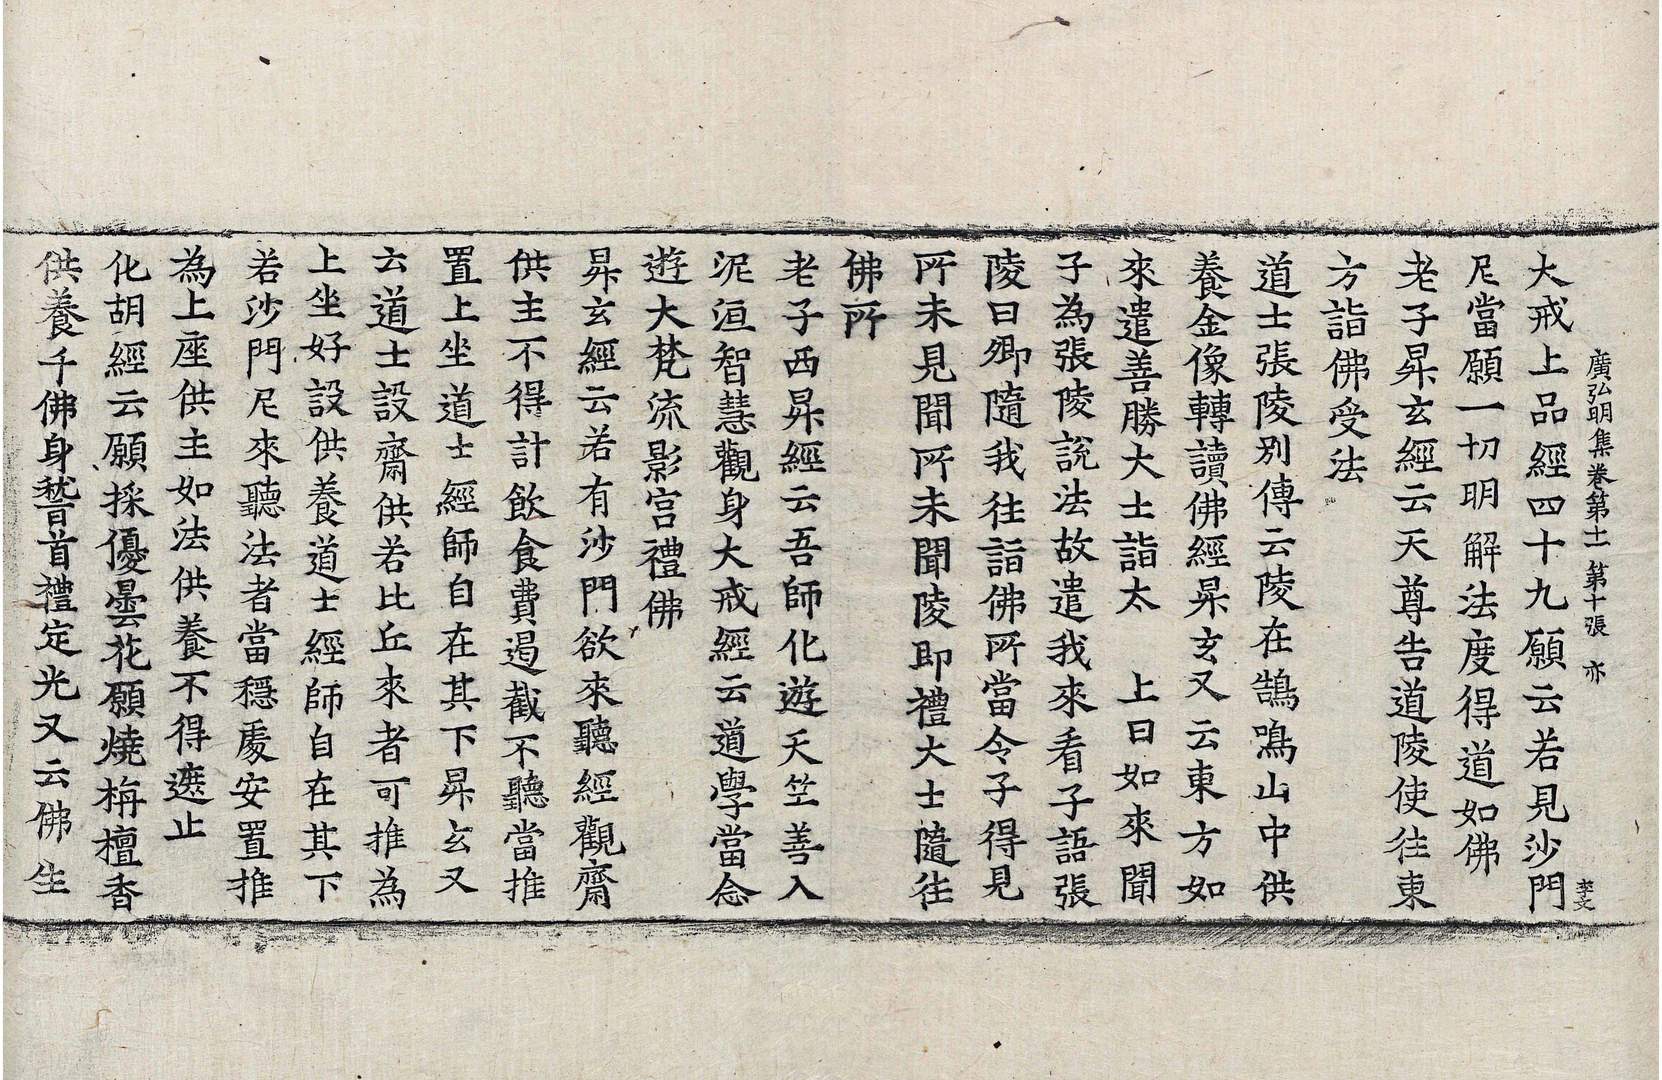 廣弘明集卷第十一 第十張 亦
李文
大戒上品經四十九願云若見沙門
尼當願一切明解法度得道如佛
老子昇玄經云天尊告道陵使往東
方詣佛受法
道士張陵別傳云陵在鵠鳴山中供
養金像轉讀佛經昇玄又云東方如
來遣善勝大士詣太 上曰如來聞
子為張陵說法故遣我來看子語張
陵曰卿隨我往詣佛所當令子得見
所未見聞所未聞陵即禮大士隨往
佛所
老子西昇經云吾師化遊天竺善入
泥洹智慧觀身大戒經云道學當念
遊大梵流影宮禮佛
昇玄經云若有沙門欲來聽經觀齋
供主不得計飲食費遏截不聽當推
置上坐道士經師自在其下昇玄又
云道士設齋供若比丘來者可推為
上坐好設供養道士經師自在其下
若沙門尼來聽法者當隱處安置推
為上座供主如法供養不得遮止
化胡經云願採優曇花願燒栴檀香
供養千佛身稽首禮定光又云佛生